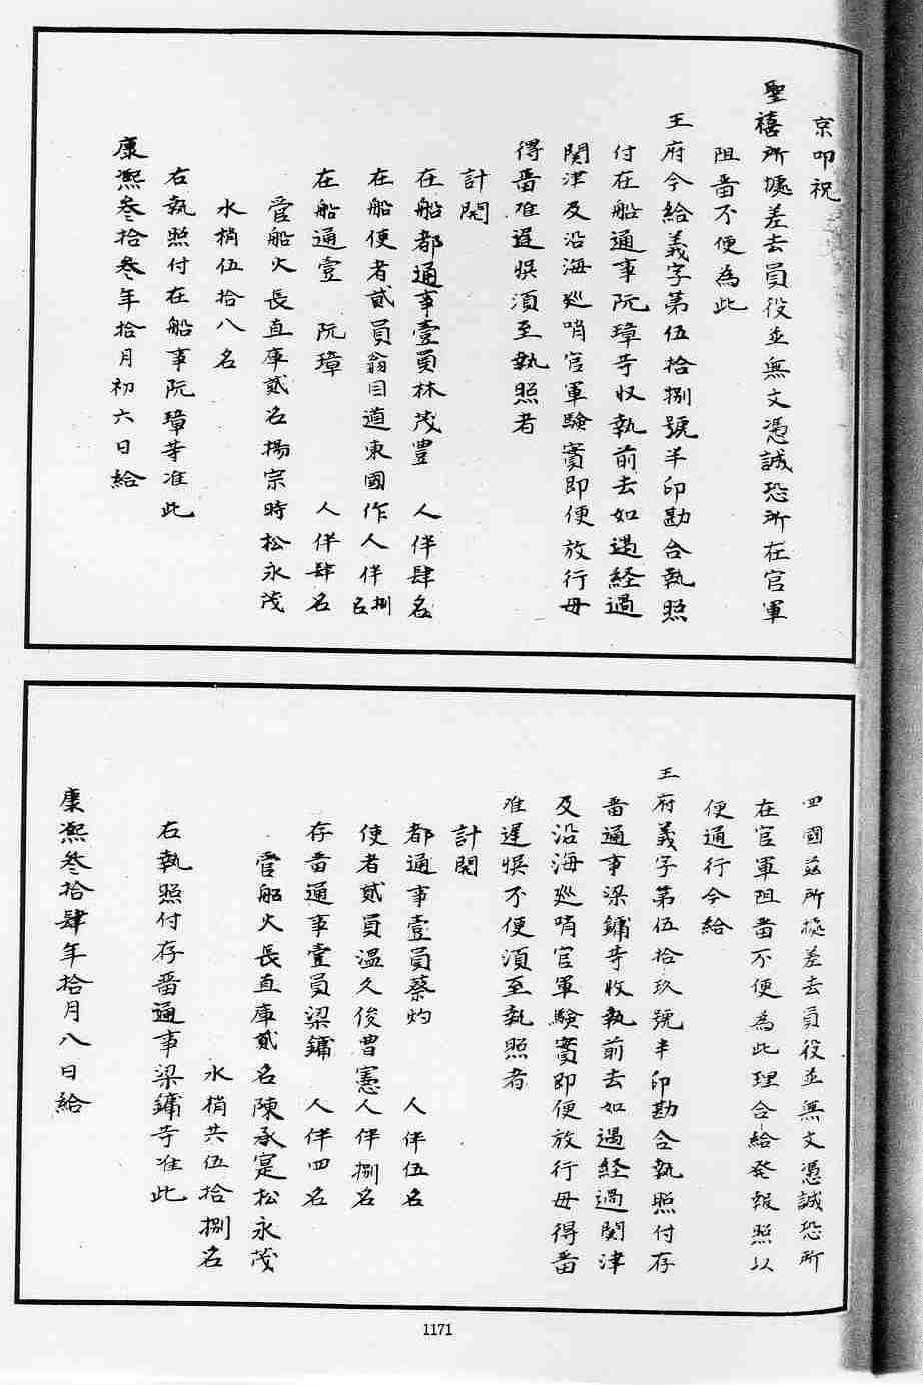 京叩祝
聖禧所據差去員役並無文憑誠恐所在官軍
阻畨不便為此
王府今給義字第伍拾捌號半印勘合執照
付在船通事阮璋等收執前去如遇經過
関津及沿海巡哨官軍驗實即便放行毋
得畨准遲悞湏至執照者
計開
在船都通事壹員林茂豊 人伴肆名
在船使者貳員翁自道東國作人伴捌名
在船通壹 阮璋 人伴肆名
管船火長直庫貳名楊宗時松永茂
水梢伍拾八名
右執照付在船事阮璋等准此
康熙叁拾叁年拾月初六日給
四國茲所據差去員役並無文憑誠恐所
在官軍阻畨不便為此理合給發報照以
便通行今給
王府義字第伍拾玖號半印勘合執照付存
畨通事梁鏞等收執前去如遇經過関津
及沿海巡哨官軍驗實即便放行毋得畨
准遲悞不便湏至執照者
計開
都通事壹員蔡灼 人伴伍名
使者貳員溫久俊曹憲人伴捌名
存畨通事壹員梁鏞 人伴四名
管船火長直庫貳名陳承寔松永茂
水梢共伍拾捌名
右執照付存畨通事梁鏞等准此
康熙叁拾肆年拾月八日給
1171